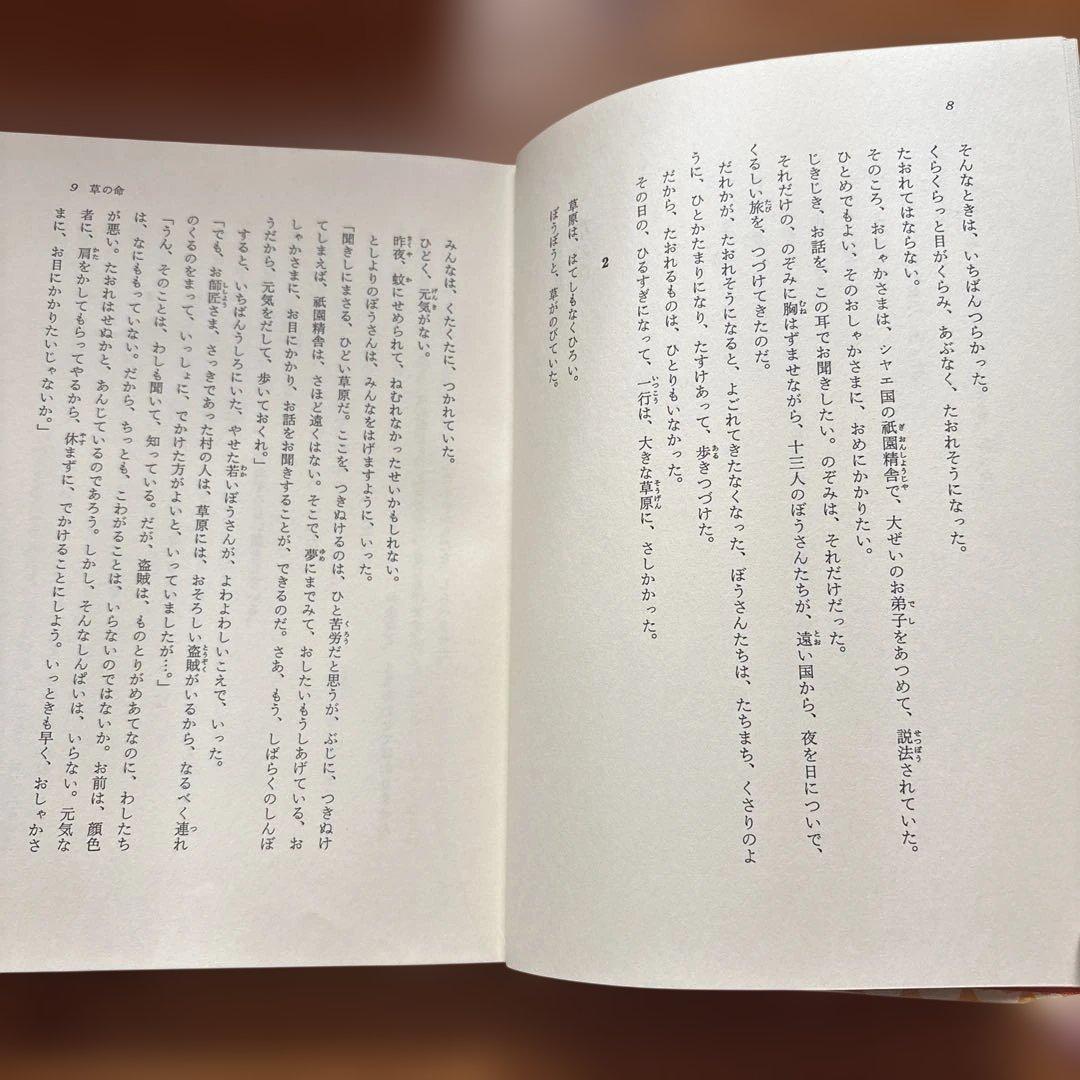 8
そんなときは、いちばんつらかった。
くらくらっと目がくらみ、あぶなく、たおれそうになった。
たおれてはならない。
そのころ、おしゃかさまは、シャエ国の祇園精舎で、大ぜいのお弟子をあつめて、説法されていた。
ひとめでもよい、そのおしゃかさまに、おめにかかりたい。
じきじき、お話を、この耳でお聞きしたい。のぞみは、それだけだった。
それだけの、のぞみに胸はずませながら、十三人のぼうさんたちが、遠い国から、夜を日についで、
くるしい旅を、つづけてきたのだ。
だれかが、たおれそうになると、よごれてきたなくなった、ぼうさんたちは、たちまち、くさりのよ
うに、ひとかたまりになり、たすけあって、歩きつづけた。
だから、たおれるものは、ひとりもいなかった。
その日の、ひるすぎになって、一行は、大きな草原に、さしかかった。
2
草原は、はてしもなくひろい。
ぼうぼうと、草がのびていた。
9 草の命
みんなは、くたくたに、つかれていた。
ひどく、元気がない。
昨夜、蚊にせめられて、ねむれなかったせいかもしれない。
としよりのぼうさんは、みんなをはげますように、いった。
「聞きしにまさる、ひどい草原だ。ここを、つきぬけるのは、ひと苦労だと思うが、ぶじに、つきぬけ
てしまえば、祇園精舎は、さほど遠くはない。そこで、夢にまでみて、おしたいもうしあげている、お
しゃかさまに、お目にかかり、お話をお聞きすることが、できるのだ。さあ、もう、しばらくのしんぼ
うだから、元気をだして、歩いておくれ。」
すると、いちばんうしろにいた、やせた若いぼうさんが、よわよわしいこえで、いった。
「でも、お師匠さま、さっきであった村の人は、草原には、おそろしい盗賊がいるから、なるべく連れ
のくるのをまって、いっしょに、でかけた方がよいと、いっていましたが…。」
「うん、そのことは、わしも聞いて、知っている。だが、盗賊は、ものとりがめあてなのに、わしたち
は、なにももっていない。だから、ちっとも、こわがることは、いらないのではないか。お前は、顔色
が悪い。たおれはせぬかと、あんじているのであろう。しかし、そんなしんぱいは、いらない。元気な
者に、肩をかしてもらってやるから、休まずに、でかけることにしよう。いっときも早く、おしゃかさ
まに、お目にかかりたいじゃないか。」